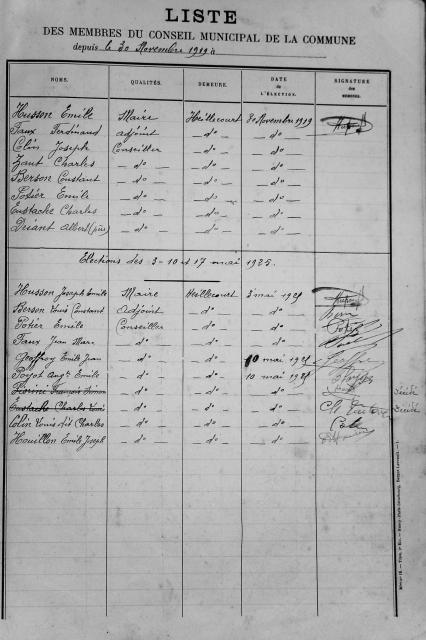 LISTE
DES MEMBRES DU CONSEIL MUNICIPAL DE LA COMMUNE
depuis le 30 Novembre 1919 à
NOMS. QUALITÉS. DEMEURE. DATE DE L'ÉLECTION. SIGNATURE DES MEMBRES.
Husson Emile Maire Heillecourt 30 Novembre 1919
Faux Ferdinand adjoint — d° — — d° —
Colin Joseph Conseiller — d° — — d° —
Zant Charles — d° — — d° — — d° —
Berson Constant — d° — — d° — — d° —
Potier Emile — d° — — d° — — d° —
Eustache Charles — d° — — d° — — d° —
Druant Albert (père) — d° — — d° — — d° —
Elections des 3-10 et 17 mai 1925.
Husson Joseph Emile Maire Heillecourt 3 mai 1925
Berson Louis Constant Adjoint d° d°
Potier Emile Conseiller d° d°
Faux Jean Marc d° d° d°
Geoffroy Emile Jean d° d° 10 mai 1925
Poyot Augte Emile d° d° 10 mai 1925
François Simon d° d° d°
Eustache Charles Louis d° d° d° Ch Eustache
Colin Louis dit Charles d° d° d° Colin
Houillon Emile Joseph d° d° d°